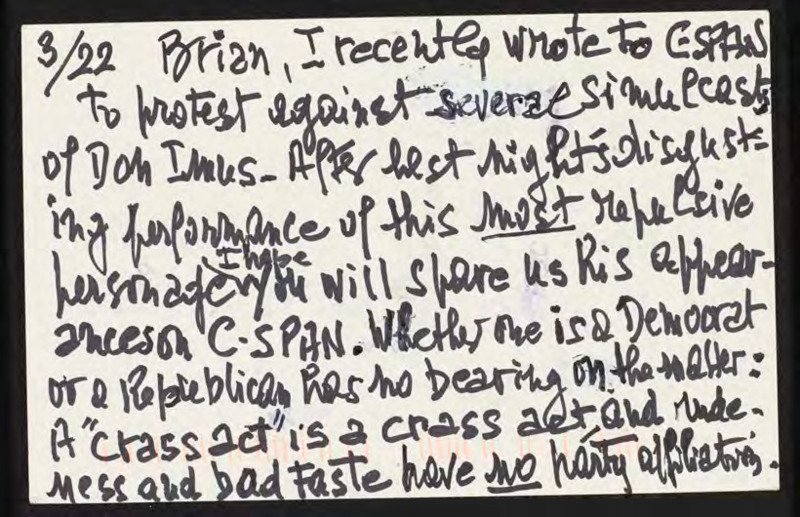 3/22 Brian, I recently wrote to C-SPAN
to protest against several simulcasts
of Don Imus. After last night's disgust-
ing performance of this most repulsive
personage I hope you will spare us his appear-
ances on C-SPAN. Whether one is a Democrat
or a Republican has no bearing on the matter:
A "crass act" is a crass act and rude-
ness and bad taste have no party affiliation.